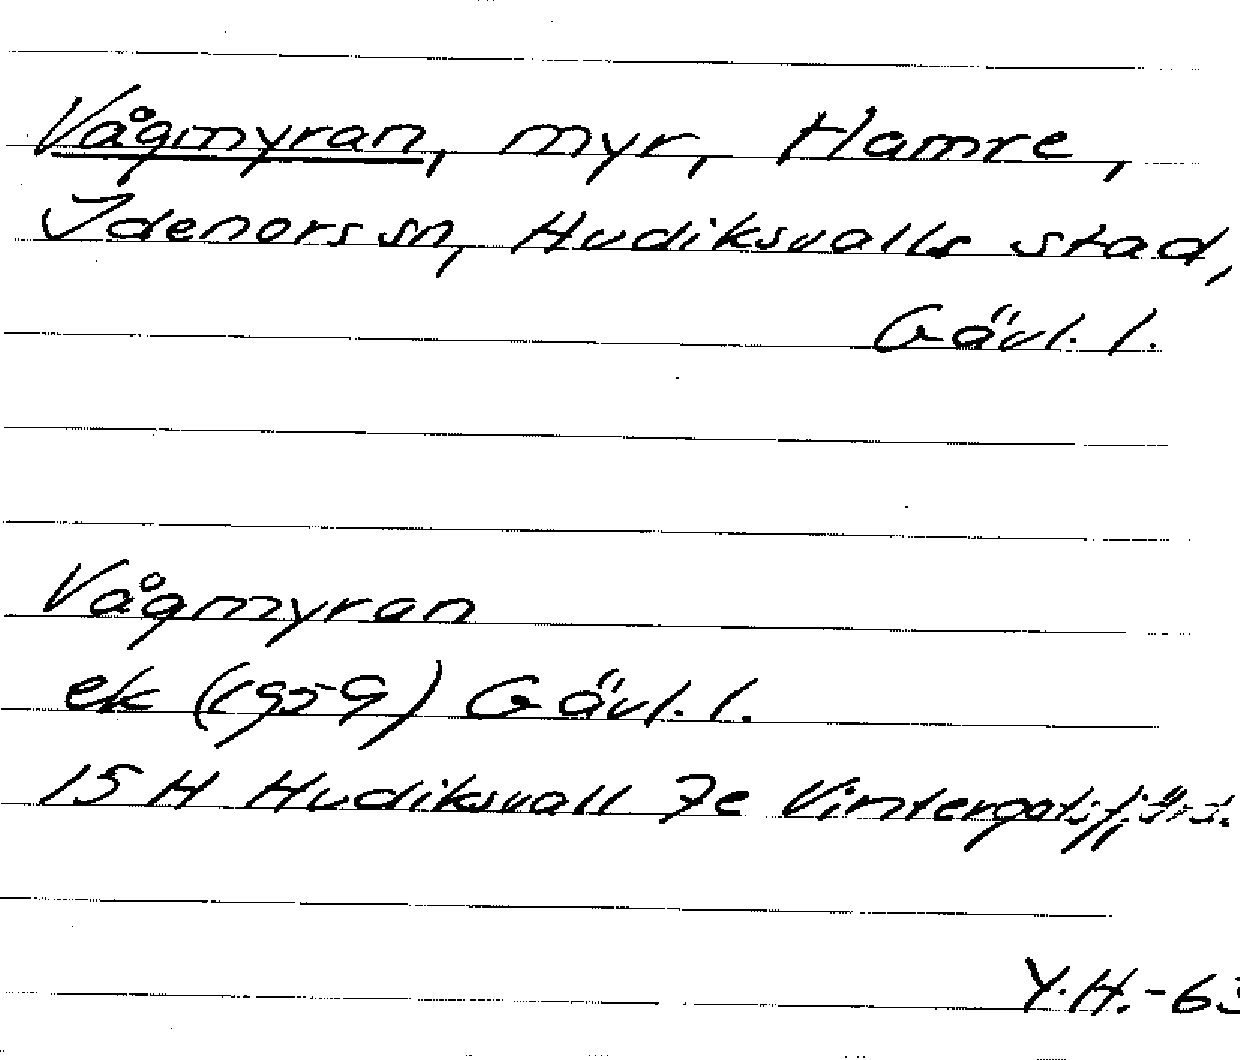 Vågmyran, myr, Hamre,
Idenors sn, Hudiksvalls stad,
Gävl. l.
Vågmyran
ek (1959) Gävl. l.
15 H Hudiksvall 7e Vintergatsfjärd.
Y.H.-63